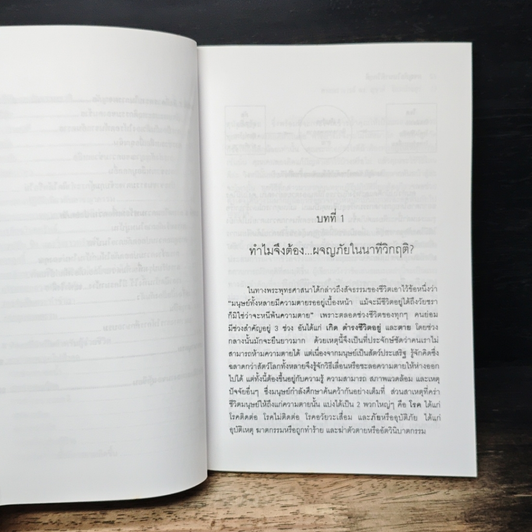 บทที่ 1
ทำไมจึงต้อง...ผจญภัยในนาทีวิกฤติ?
ในทางพระพุทธศาสนาได้กล่าวถึงสัจธรรมของชีวิตเอาไว้ข้อหนึ่งว่า
"มนุษย์ทั้งหลายมีความตายรออยู่เบื้องหน้า แม้จะมีชีวิตอยู่ได้ถึงวัยชรา
ก็มิใช่ว่าจะหนีพ้นความตาย" เพราะตลอดช่วงชีวิตของทุกๆ คนย่อม
มีช่วงสำคัญอยู่ 3 ช่วง อันได้แก่ เกิด ดำรงชีวิตอยู่ และตาย โดยช่วง
กลางนั้นมักจะยืนยาวมาก ด้วยเหตุนี้จึงเป็นที่ประจักษ์ชัดว่าคนเราไม่
สามารถห้ามความตายได้ แต่เนื่องจากมนุษย์เป็นสัตว์ประเสริฐ รู้จักคิดซึ่ง
ฉลาดกว่าสัตว์โลกทั้งหลายจึงรู้จักวิธีเลื่อนหรือชะลอความตายให้ห่างออก
ไปได้ แต่ทั้งนี้ต้องขึ้นอยู่กับความรู้ ความสามารถ สภาพแวดล้อม และเหตุ
ปัจจัยอื่นๆ ซึ่งมนุษย์กำลังศึกษาค้นคว้ากันอย่างเต็มที่ ส่วนสาเหตุที่คร่า
ชีวิตมนุษย์ให้ถึงแก่ความตายนั้น แบ่งได้เป็น 2 พวกใหญ่ๆ คือ โรค ได้แก่
โรคติดต่อ โรคไม่ติดต่อ โรคอวัยวะเสื่อม และภัยหรืออุบัติภัย ได้แก่
อุบัติเหตุ ฆาตกรรมหรือถูกทำร้าย และฆ่าตัวตายหรืออัตวินิบาตกรรม